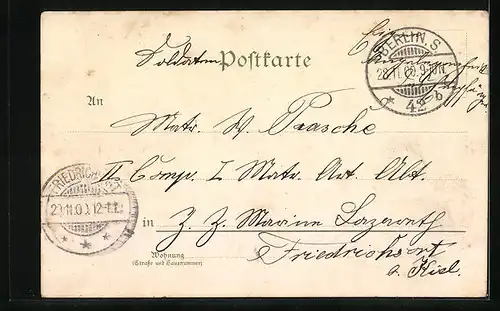 Soldaten Postkarte
BERLIN. S.
42 b
An
Matr. W. Paasche
II Comp. I. Matr. Art. Abt.
FRIEDRICHSORT
in Z. Z. Marine Lazareth
Wohnung
(Straße und Hausnummer)
Friedrichsort
b. Kiel.